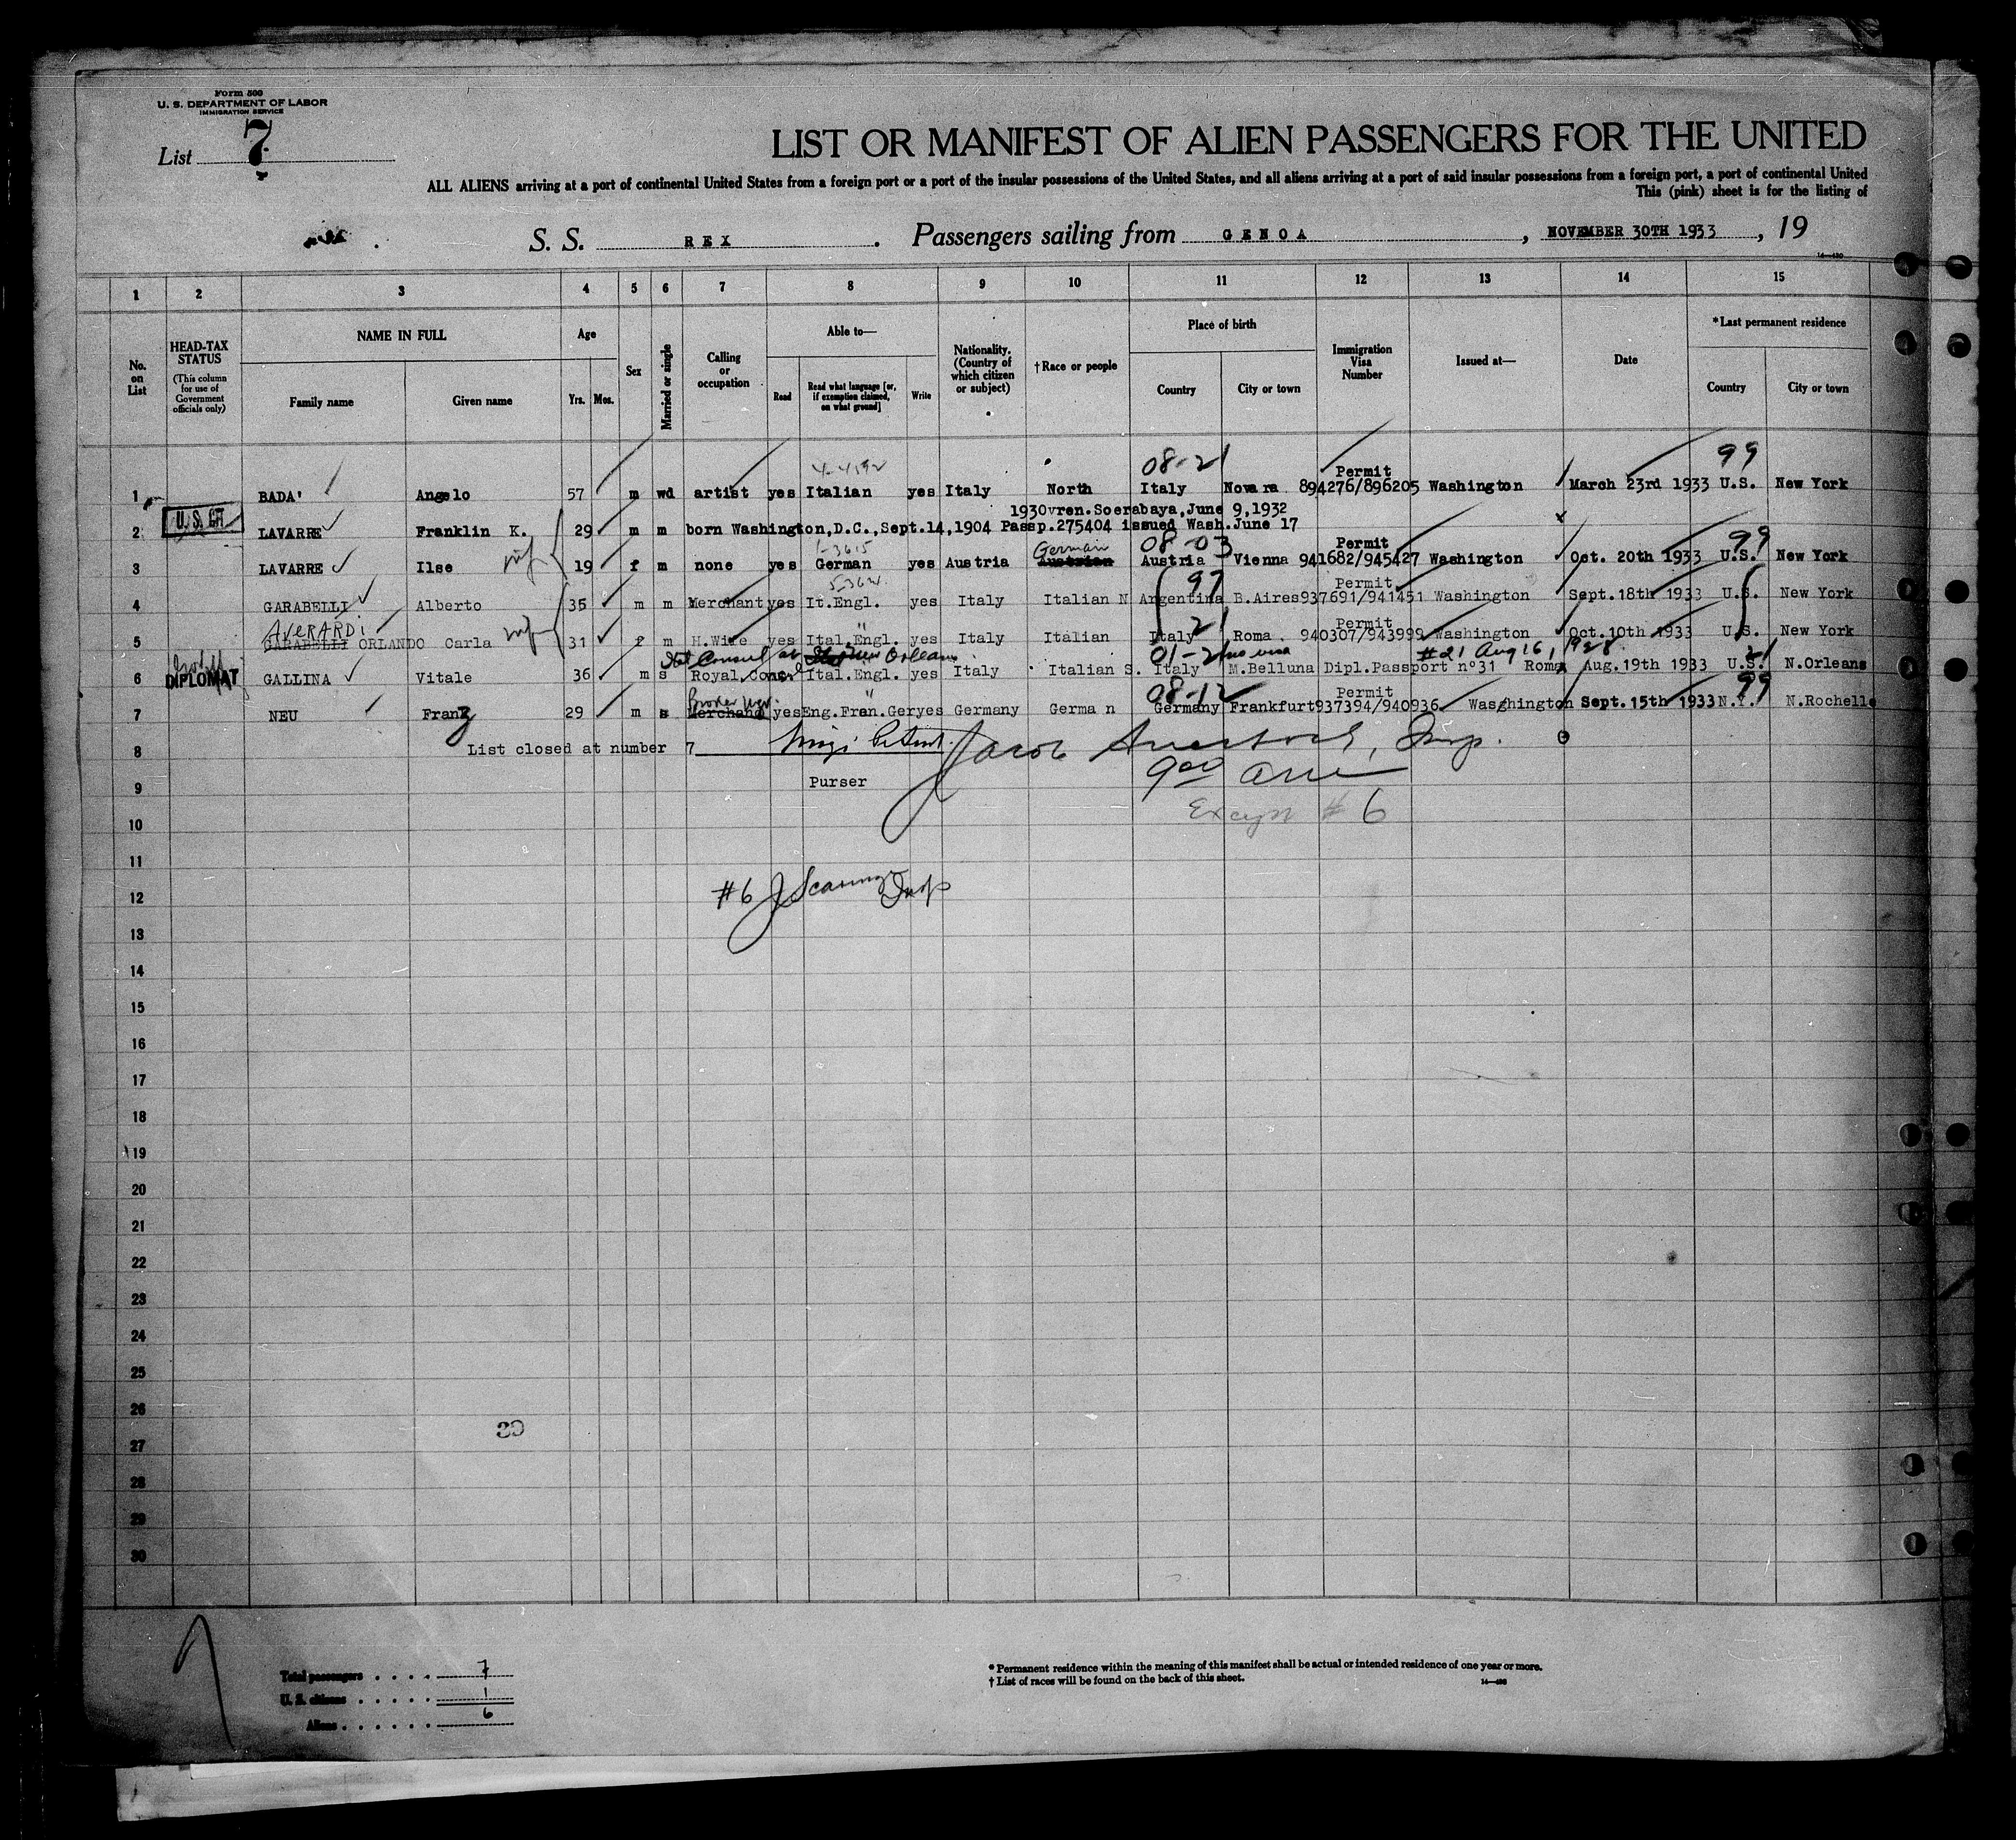 Form 500
U. S. DEPARTMENT OF LABOR
IMMIGRATION SERVICE
List 7
LIST OR MANIFEST OF ALIEN PASSENGERS FOR THE UNITED
ALL ALIENS arriving at a port of continental United States from a foreign port or a port of the insular possessions of the United States, and all aliens arriving at a port of said insular possessions from a foreign port, a port of continental United
This (pink) sheet is for the listing of
S. S. REX . Passengers sailing from GENOA , NOVEMBER 30TH 1933 , 19
1 2 3 4 5 6 7 8 9 10 11 12 13 14 15
No. on List
HEAD-TAX STATUS (This column for use of Government officials only)
NAME IN FULL
Family name
Given name
Age
Yrs. Mos.
Sex
Married or single
Calling or occupation
Able to—
Read
Read what language [or, if exemption claimed, on what ground]
Write
Nationality. (Country of which citizen or subject)
† Race or people
Place of birth
Country
City or town
Immigration Visa Number
Issued at—
Date
* Last permanent residence
Country
City or town
08-21 Permit 99
1 BADA' Angelo 57 m wd artist yes Italian yes Italy North Italy Novara 894276/896205 Washington March 23rd 1933 U.S. New York
1930vren.Soerabaya,June 9,1932
2 U.S. CIT LAVARRE Franklin K. 29 m m born Washington,D.C.,Sept.14,1904 Passp.275404 issued Wash.June 17
German 08-03 Permit 99
3 LAVARRE Ilse 19 f m none yes German yes Austria Austrian Austria Vienna 941682/945427 Washington Oct. 20th 1933 U.S. New York
97 Permit
4 GARABELLI Alberto 35 m m Merchant yes It.Engl. yes Italy Italian N Argentina B.Aires 937691/941451 Washington Sept.18th 1933 U.S. New York
AVERARDI 21 Permit
5 GARABELLI ORLANDO Carla 31 f m H.Wife yes Ital.Engl. yes Italy Italian Italy Roma. 940307/943999 Washington Oct.10th 1933 U.S. New York
Ital Consul at New Orleans 01-21 no visa #21 Aug 16, 1928 21
6 DIPLOMAT GALLINA Vitale 36 m s Royal Cons. Ital.Engl. yes Italy Italian S. Italy M.Belluna Dipl.Passport n°31 Roma Aug.19th 1933 U.S. N.Orleans
08-12 Permit 99
7 NEU Franz 29 m s Merchand yes Eng.Fran.Ger yes Germany German Germany Frankfurt 937394/940936 Washington Sept.15th 1933 N.Y. N.Rochelle
8 List closed at number 7
9 Purser
900
10 #6
11
12 #6 Insp
13
14
15
16
17
18
19
20
21
22
23
24
25
26
30
27
28
29
30
Total passengers . . . . 7
U. S. citizens . . . . . 1
Aliens . . . . . . 6
* Permanent residence within the meaning of this manifest shall be actual or intended residence of one year or more.
† List of races will be found on the back of this sheet.